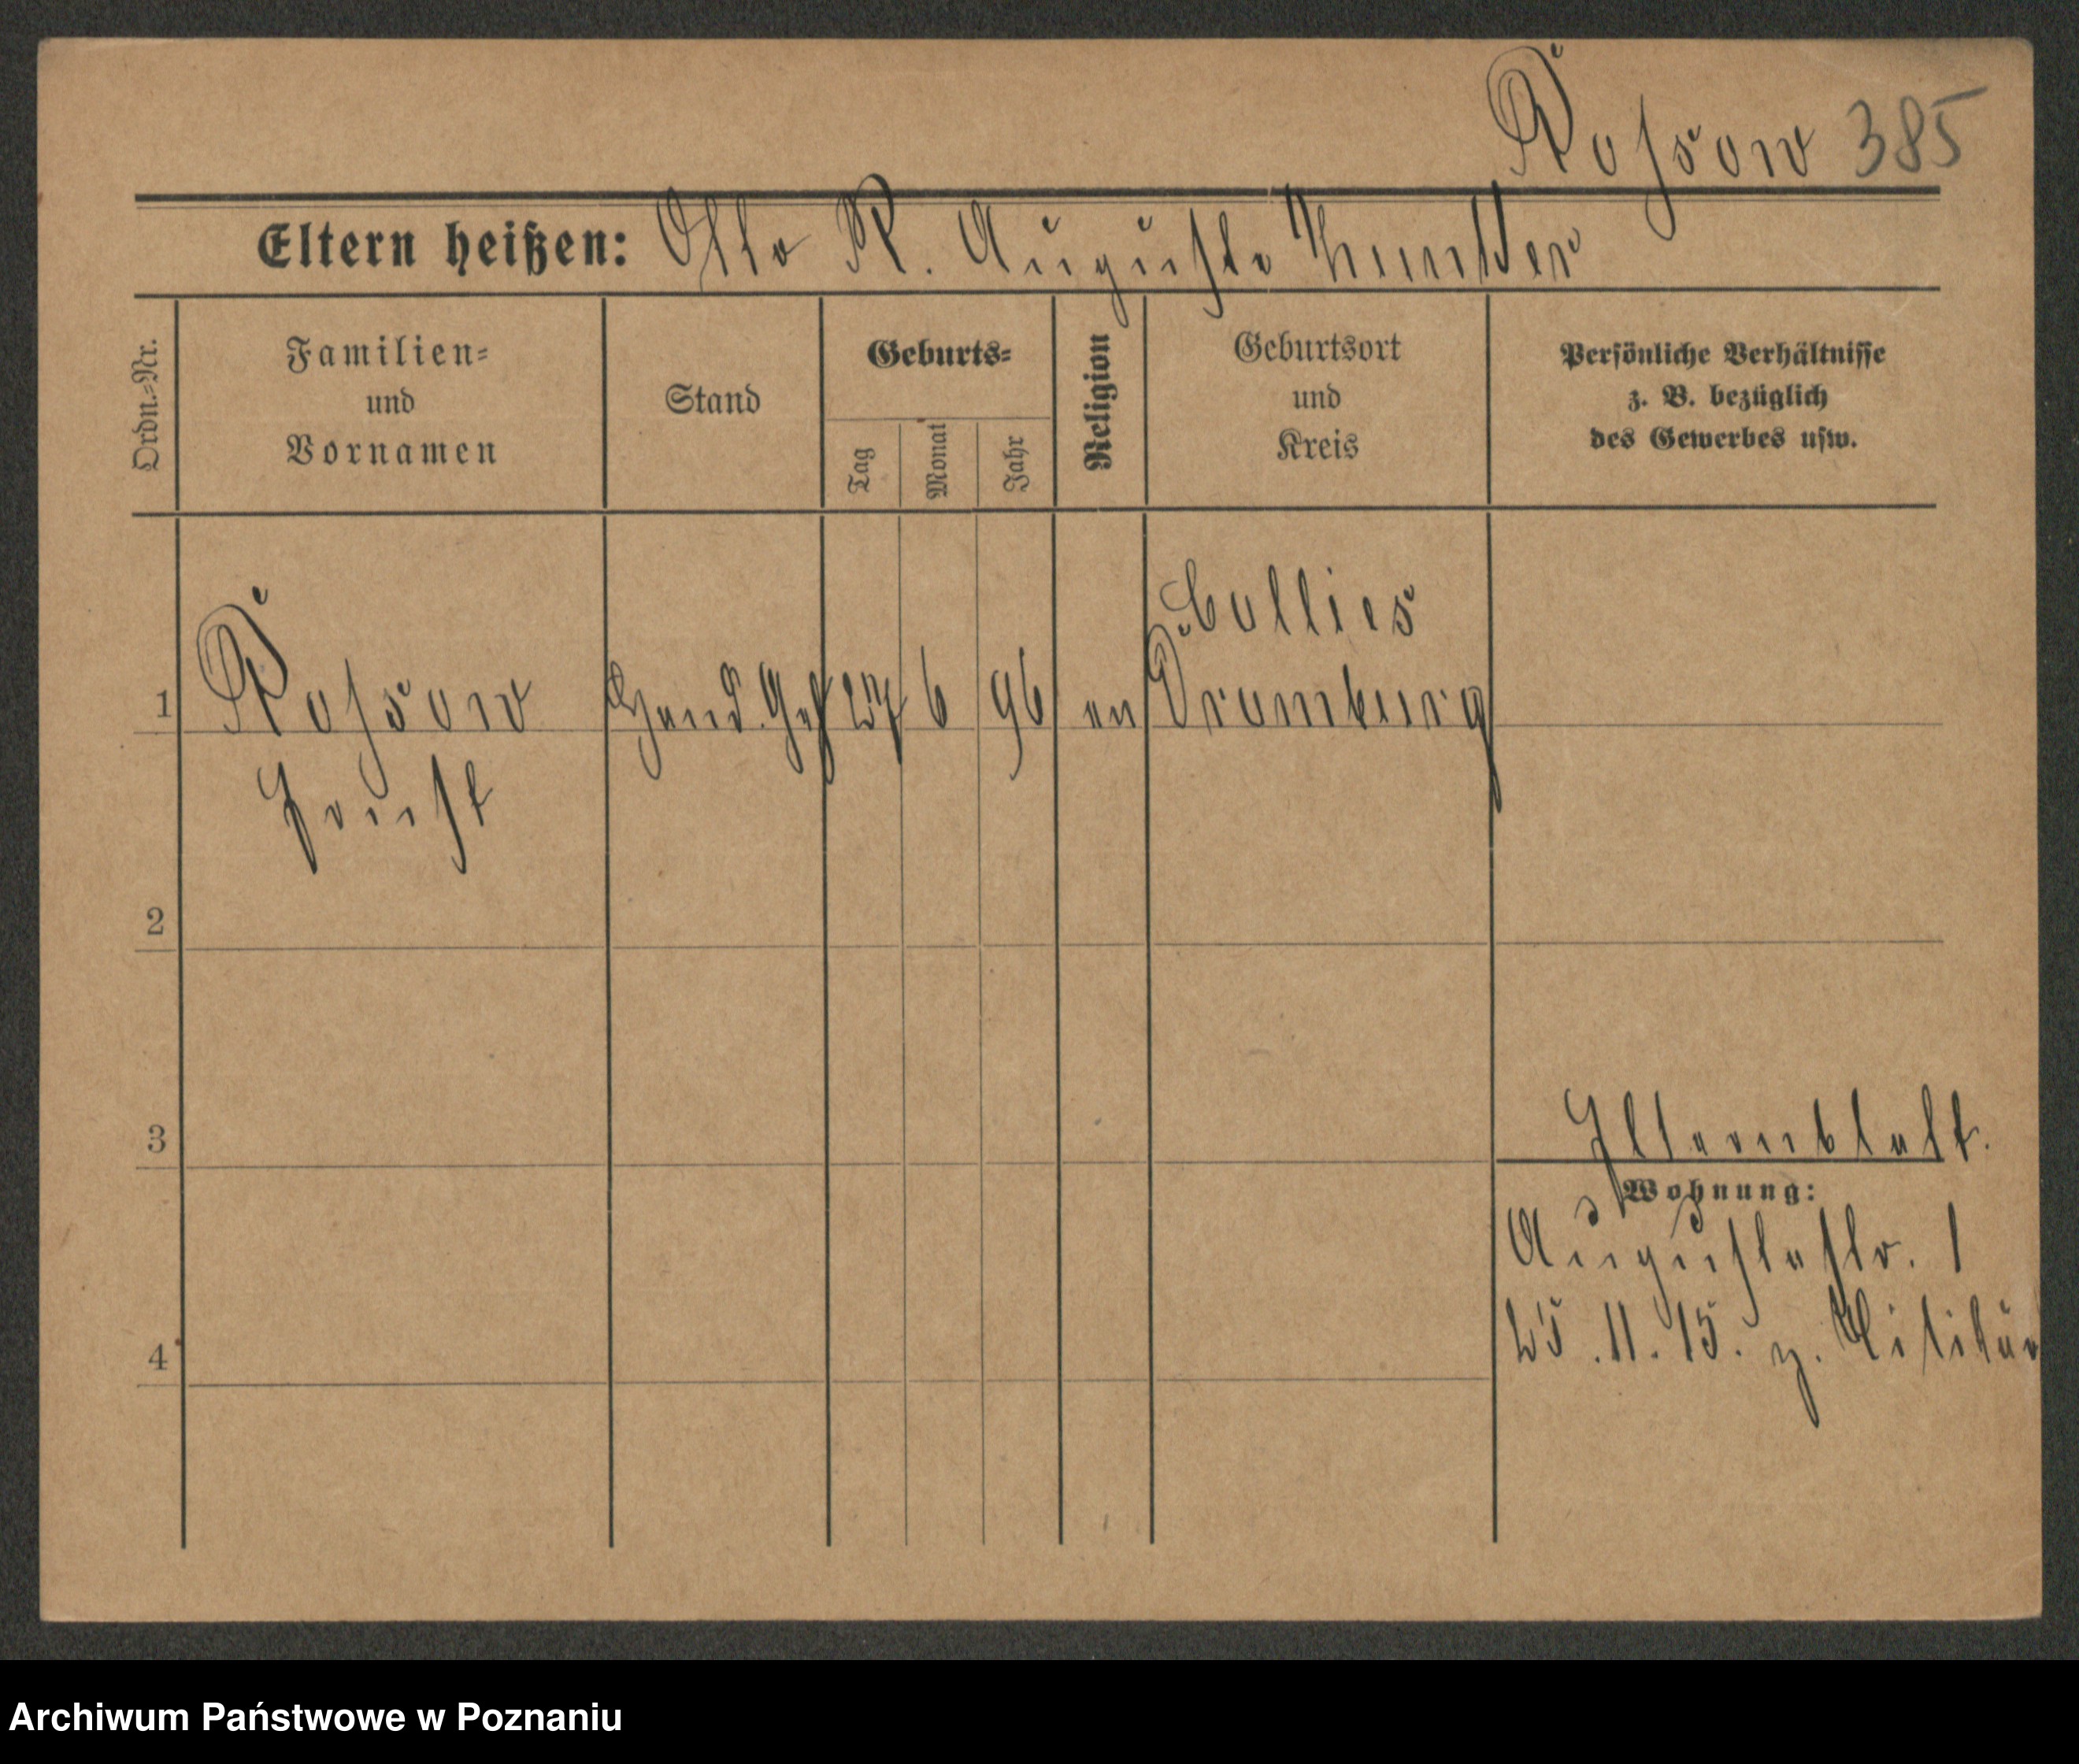 Rossow 385
Eltern heißen: Otto R. Auguste
Ordn.-Nr.
Familien-
und
Vornamen
Stand
Geburts-
Tag
Monat
Jahr
Religion
Geburtsort
und
Kreis
Persönliche Verhältnisse
z. B. bezüglich
des Gewerbes usw.
Callies
1 Rossow Hand. Geh 27 6 96 ev Dramburg
Ernst
2
3
Wohnung:
Augustastr. 1
25.11.15. z. Militär
4
Archiwum Państwowe w Poznaniu